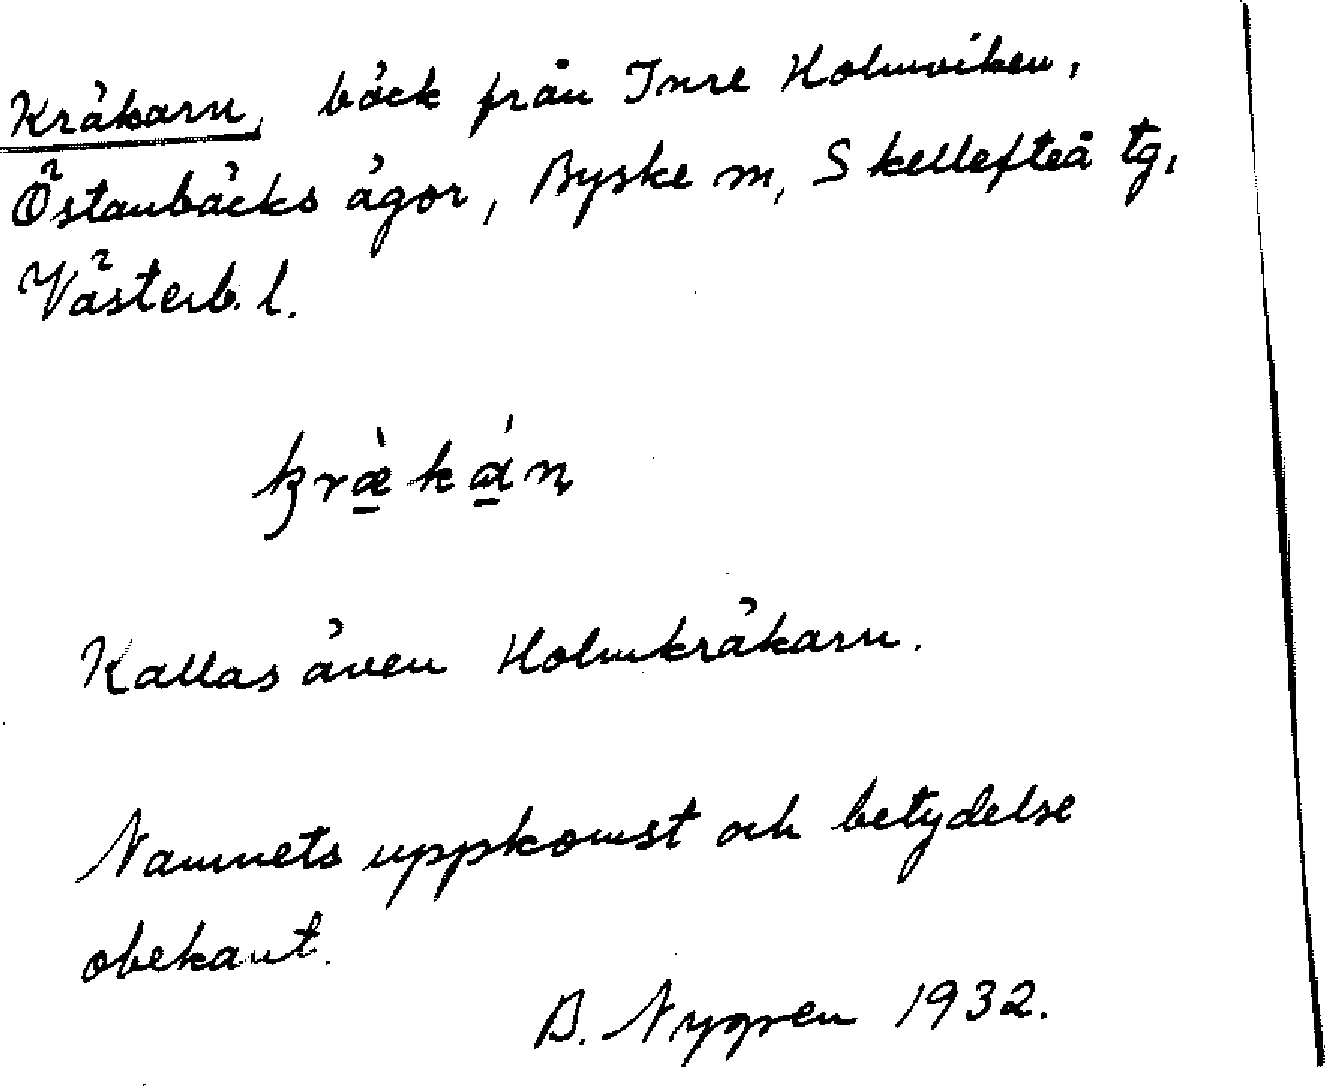 Kräkarn, bäck från Inre Holmviken,
Östanbäcks ägor, Byske sn, Skellefteå tg,
Västerb. l.
kræ̀ka̱ń
Kallas även Holmkräkarn.
Namnets uppkomst och betydelse
obekant.
B. Nygren 1932.